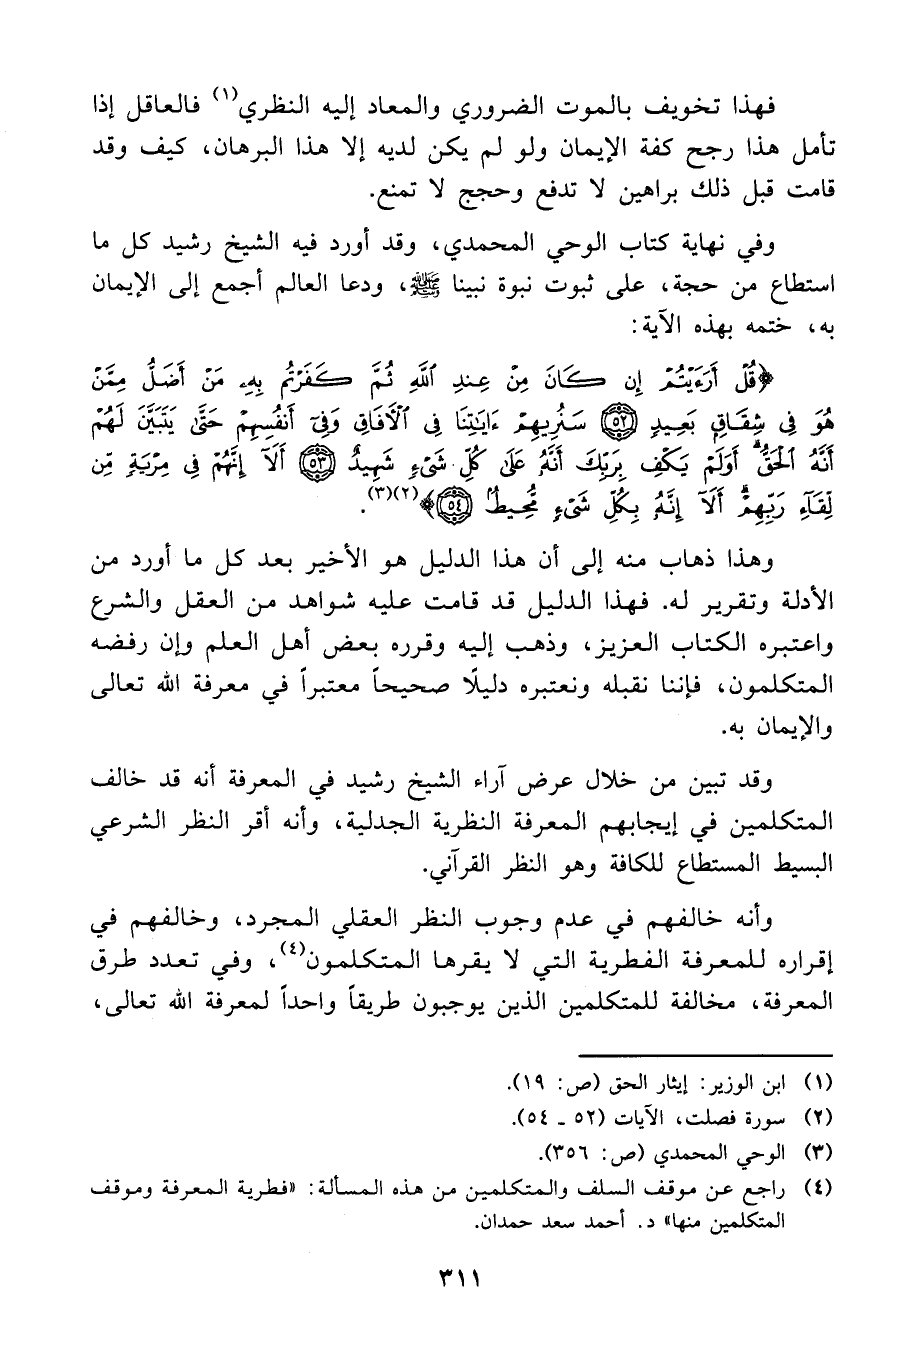 فهذا تخويف بالموت الضروري والمعاد إليه النظري(١) فالعاقل إذا
تأمل هذا رجح كفة الإيمان ولو لم يكن لديه إلا هذا البرهان، كيف وقد
قامت قبل ذلك براهين لا تدفع وحجج لا تمنع.
وفي نهاية كتاب الوحي المحمدي، وقد أورد فيه الشيخ رشيد كل ما
استطاع من حجة، على ثبوت نبوة نبينا ﷺ، ودعا العالم أجمع إلى الإيمان
به، ختمه بهذه الآية:
﴿قُلْ أَرَءَيْتُمْ إِن كَانَ مِنْ عِندِ ٱللَّهِ ثُمَّ كَفَرْتُم بِهِۦ مَنْ أَضَلُّ مِمَّنْ
هُوَ فِى شِقَاقٍۭ بَعِيدٍ ﴿٥٢﴾ سَنُرِيهِمْ ءَايَٰتِنَا فِى ٱلْءَافَاقِ وَفِىٓ أَنفُسِهِمْ حَتَّىٰ يَتَبَيَّنَ لَهُمْ
أَنَّهُ ٱلْحَقُّ ۗ أَوَلَمْ يَكْفِ بِرَبِّكَ أَنَّهُۥ عَلَىٰ كُلِّ شَىْءٍ شَهِيدٌ ﴿٥٣﴾ أَلَآ إِنَّهُمْ فِى مِرْيَةٍ مِّن
لِّقَآءِ رَبِّهِمْ ۗ أَلَآ إِنَّهُۥ بِكُلِّ شَىْءٍ مُّحِيطٌۢ ﴿٥٤﴾﴾(٢)(٣).
وهذا ذهاب منه إلى أن هذا الدليل هو الأخير بعد كل ما أورد من
الأدلة وتقرير له. فهذا الدليل قد قامت عليه شواهد من العقل والشرع
واعتبره الكتاب العزيز، وذهب إليه وقرره بعض أهل العلم وإن رفضه
المتكلمون، فإننا نقبله ونعتبره دليلًا صحيحاً معتبراً في معرفة الله تعالى
والإيمان به.
وقد تبين من خلال عرض آراء الشيخ رشيد في المعرفة أنه قد خالف
المتكلمين في إيجابهم المعرفة النظرية الجدلية، وأنه أقر النظر الشرعي
البسيط المستطاع للكافة وهو النظر القرآني.
وأنه خالفهم في عدم وجوب النظر العقلي المجرد، وخالفهم في
إقراره للمعرفة الفطرية التي لا يقرها المتكلمون(٤)، وفي تعدد طرق
المعرفة، مخالفة للمتكلمين الذين يوجبون طريقاً واحداً لمعرفة الله تعالى،
(١) ابن الوزير: إيثار الحق (ص: ١٩).
(٢) سورة فصلت، الآيات (٥٢ ـ ٥٤).
(٣) الوحي المحمدي (ص: ٣٥٦).
(٤) راجع عن موقف السلف والمتكلمين من هذه المسألة: «فطرية المعرفة وموقف
المتكلمين منها» د. أحمد سعد حمدان.
٣١١